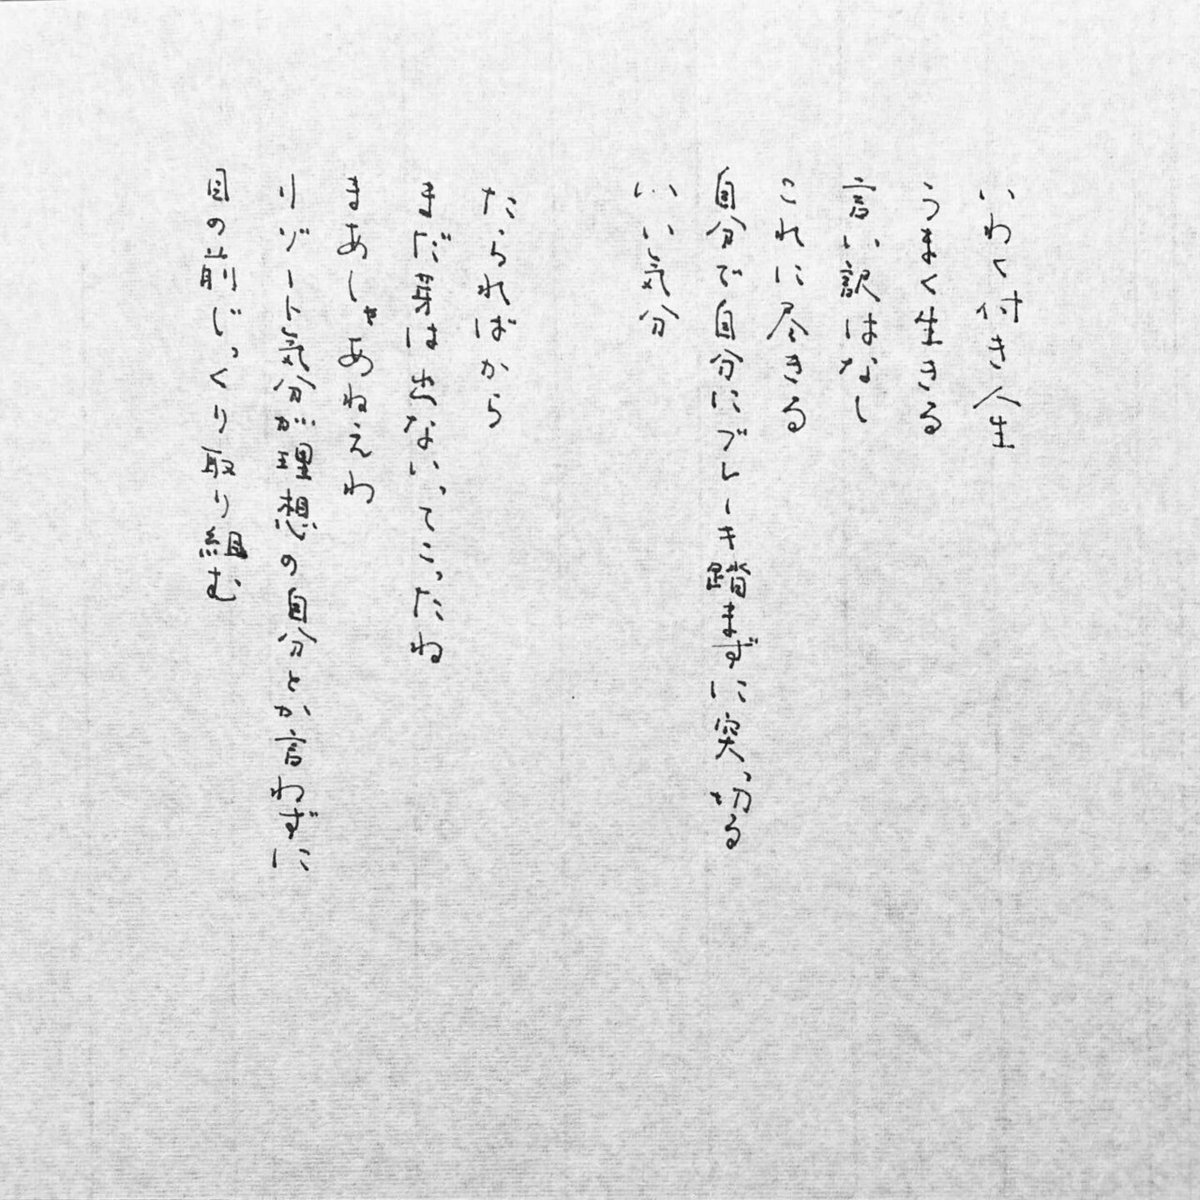 いわく付き人生
うまく生きる
言い訳はなし
これに尽きる
自分で自分にブレーキ踏まずに突っ切る
いい気分
たらればから
まだ芽は出ないってこったね
まあしゃあねえわ
リゾート気分が理想の自分とか言わずに
目の前じっくり取り組む